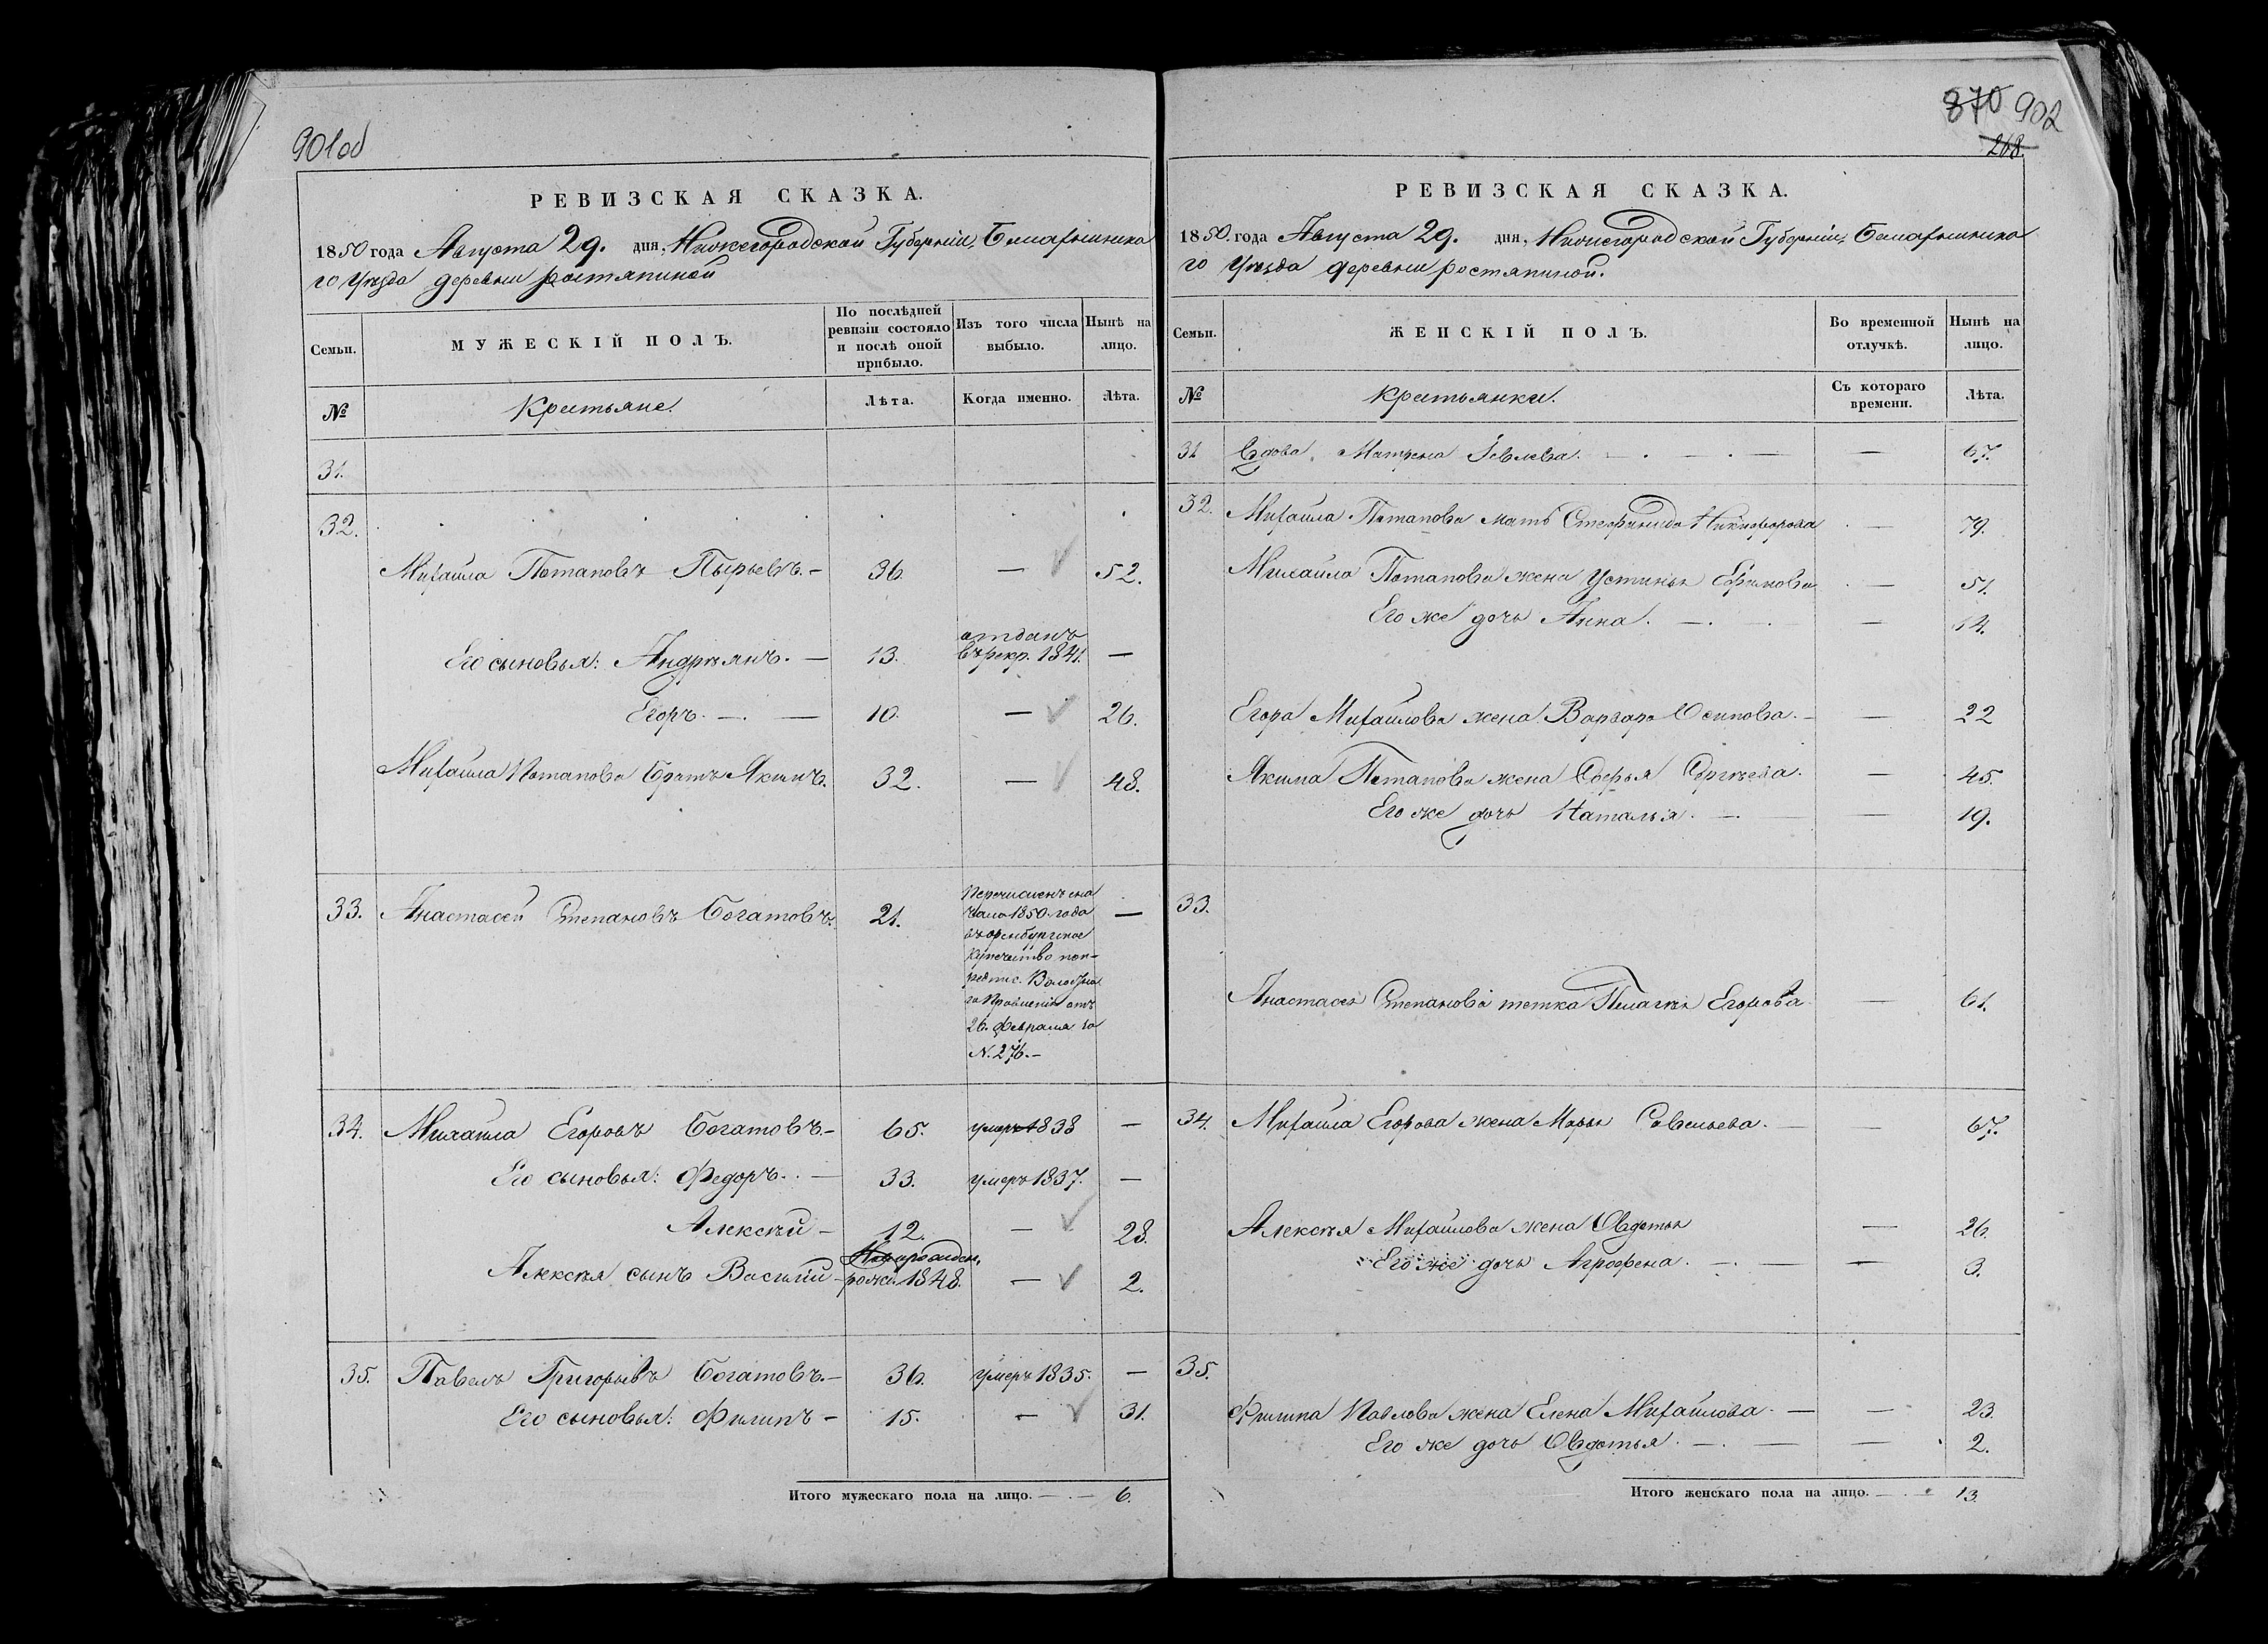 901об
РЕВИЗСКАЯ СКАЗКА.
1850 года Августа 29. дня, Нижегородской Губерніи, Балахнинска
го Уѣзда деревни Ростяпиной
Семьи.
МУЖЕСКІЙ ПОЛЪ.
По послѣдней ревизіи состояло и послѣ оной прибыло.
Изъ того числа выбыло.
Нынѣ на лицо.
№
Крестьяне.
Лѣта.
Когда именно.
Лѣта.
31.
32.
Михайла Потаповъ Пырьевъ. — 36. — 52.
Его сыновья: Андреянъ. — 13. отданъ въ рекр. 1841. —
Егоръ. — . — 10. — 26.
Михайла Потапова братъ Якимъ. 32. — 48.
33. Анастасей Степановъ Богатовъ. 21. —
Перечисленъ сна
чала 1850 года
въ оренбургское
купечество по
Волостна
го Правленія отъ
26. Февраля за
N. 276. —
34. Михаила Егоровъ Богатовъ. — 65. умеръ 1838 —
Его сыновья: Федоръ. — 33. умеръ 1837. —
Алексѣй — 12. — 28.
Алексѣя сынъ Василій — рожд. 1848. — 2.
35. Павелъ Григорьевъ Богатовъ. — 36. умеръ 1835. —
Его сыновья: Филипъ — 15. — 31.
Итого мужескаго пола на лицо. — . — 6.
870 902
268.
РЕВИЗСКАЯ СКАЗКА.
1850. года Августа 29. дня, Нижегородской Губерніи, Балахнинска
го Уѣзда деревни Ростяпиной.
Семьи.
ЖЕНСКІЙ ПОЛЪ.
Во временной отлучкѣ.
Нынѣ на лицо.
№
Крестьянки.
Съ котораго времени.
Лѣта.
31 Вдова Матрена Іевлева. — . — . — — 67.
32. Михайла Потапова мать Стефанида Никифорова — 79.
Михайла Потапова жена Устинья Ефимова — 51.
Его же дочь Анна. — . — 14.
Егора Михайлова жена Варвара Осипова. — — 22
Якима Потапова жена Софья Сергѣева. — 45.
Его же дочь Наталья. — . — 19.
33.
Анастасея Степанова тетка Пелагѣя Егорова — 61.
34. Михайла Егорова жена Марья Савельева. — — 67.
Алексѣя Михайлова жена Овдотья — 26.
Его же дочь Агрофена. — . — — 3.
35.
Филипа Павлова жена Елена Михайлова. — — 23.
Его же дочь Овдотья. — . — — 2.
Итого женскаго пола на лицо. — . — 13.